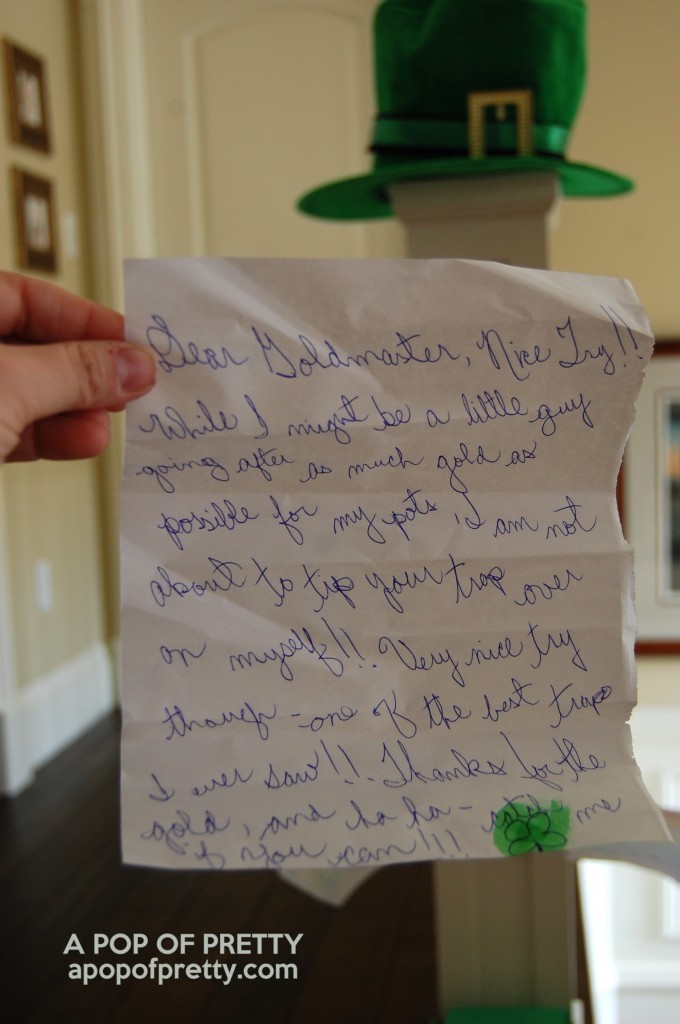 Dear Goldmaster, Nice Try!!
While I might be a little guy
going after as much gold as
possible for my pots, I am not
about to tip your trap over
on myself!!. Very nice try
though - one of the best traps
I ever saw!!. Thanks for the
gold, and ha ha - catch me
if you can!!!
A POP OF PRETTY
apopofpretty.com